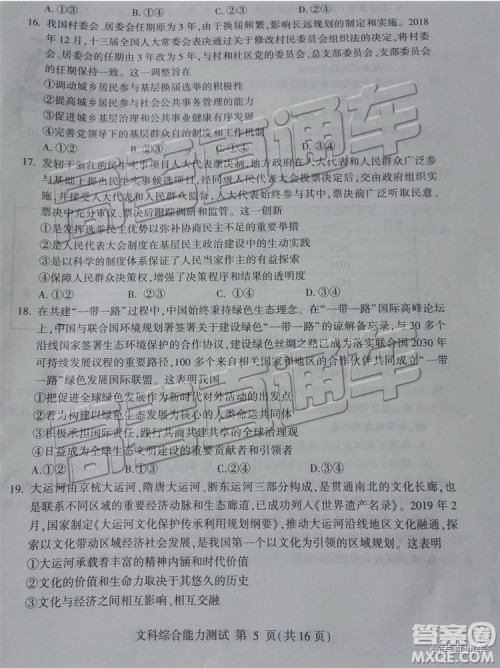 A.①③ B.①④ C.②③ D.②④
16. 我国村委会、居委会任期原为3年,由于换届频繁,影响长远规划的制定和实施。2018
年12月,十三届全国人大常委会表决通过关于修改村民委员会组织法的决定,将村委
会、居委会的任期由3年改为5年,与村和社区党的委员会、总支部委员会、支部委员会
的任期保持一致。这一调整旨在
①调动城乡居民参与基层换届选举的积极性
②提高城乡居民参与社会公共事务管理的能力
③促进城乡基层治理和公共事业健康有序发展
④完善党领导下的基层群众自治制度和治理方式
A.①② B.①③ C.②④ D.③④
17. 发初于浙江的民生实事项目人大代表票决制,地方政府在人大代表和人民群众广泛参
与基础上提出民生实事候选项目,经同级人民代表大会以代表投票表决的方式决定后,
由政府组织实施,并接受人大代表和人民群众监督。其中,票决前广泛听取民意、
票决中充分审议、票决后跟踪调研和监管。这一创新
①是发挥选举民主优势以弥补协商民主不足的重要举措
②是人民代表大会制度在基层民主政治建设中的生动实践
③是以科学的程序体系保证了人民当家作主的有益探索
④保障人民群众决策、管理程序和结果的透明度
A.①② B.①④ C.②③ D.③④
18. 在共建“一带一路”过程中,中国始终秉持绿色生态理念。在“一带一路”国际高峰论坛
上,中国与联合国环境规划署签署关于建设绿色“一带一路”的谅解备忘录,与30多个
沿线国家签署生态环境保护的合作协议,建设绿色丝绸之路已成为落实联合国2030年
可持续发展议程的重要路径,100多个来自相关国家和地区的合作伙伴共同成立“一带
一路”绿色发展国际联盟。这表明我国
①把促进全球绿色发展作为新时代对外活动的出发点
②着力构建以绿色生态发展为核心的人类命运共同体
③积极承担国际责任,践行共商共建共享的全球治理观
④日益成为全球生态文明建设的重要贡献者和引领者
A.①② B.①③ C.②④ D.③④
19. 大运河由京杭大运河、隋唐大运河、浙东运河三部分构成,是贯通南北的文化长廊,也
是联系不同区域的重要经济动脉和生态廊道,已成功列入《世界遗产名录》。2019年2
月,国家制定《大运河文化保护传承利用规划纲要》,推动大运河沿线地区文化融通,探
索以文化带动区域经济社会发展,使其成为我国第一个以文化为引领的区域规划。这
表明
①大运河承载着丰富的精神内涵和时代价值
②文化的价值和生命力取决于其悠久的历史
③文化与经济之间相互影响、相互交融
文科综合能力测试 第 5 页(共16页)
高考直通车
答案圈
MXQE.COM